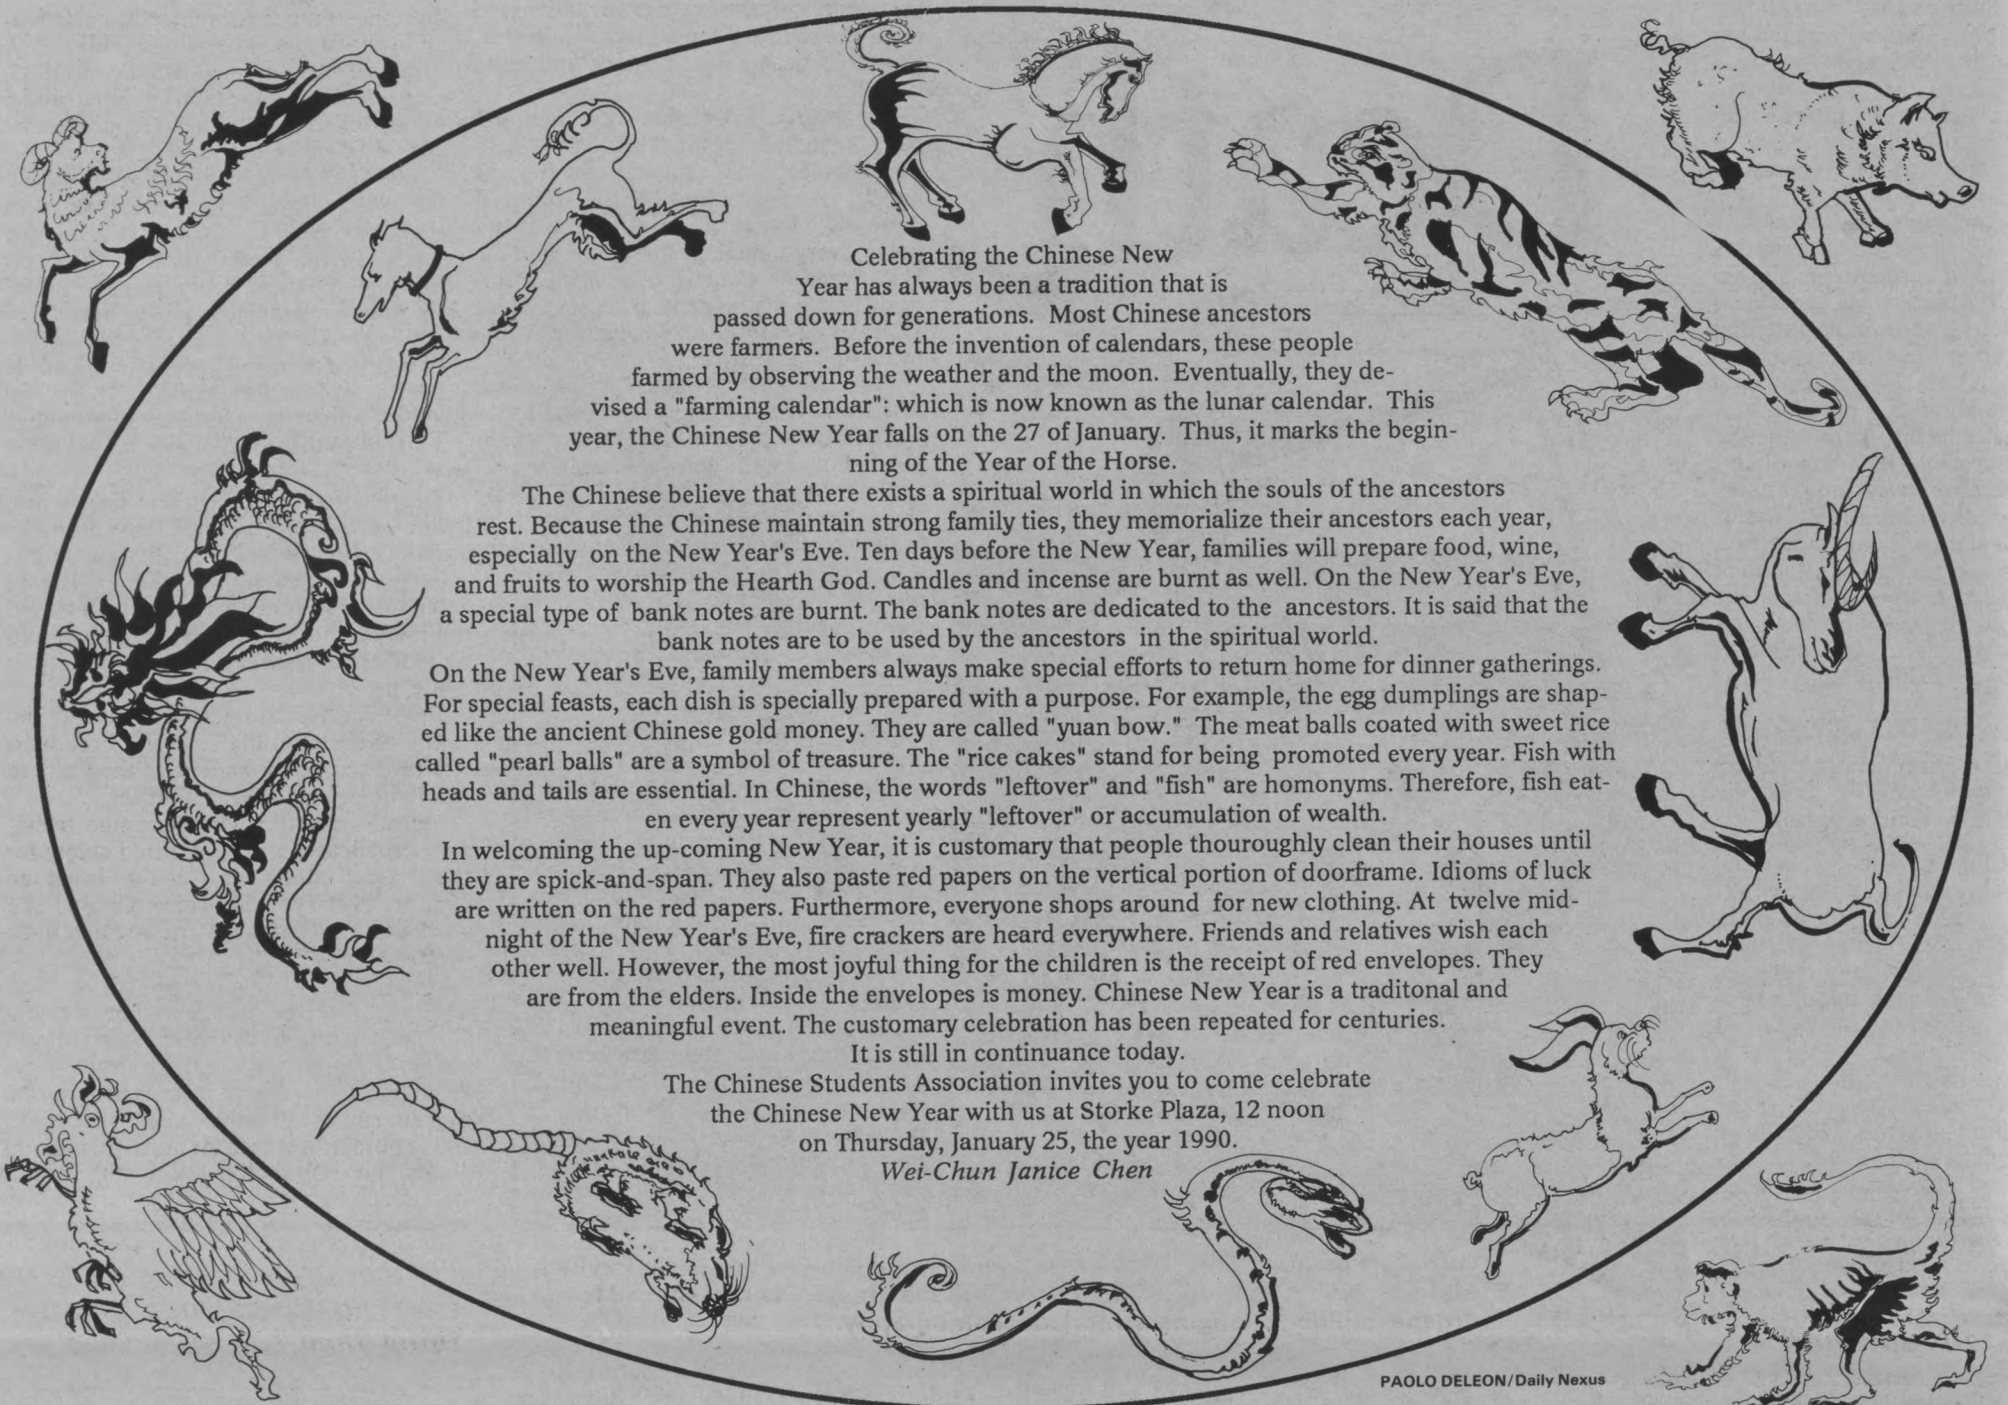 Celebrating the Chinese New
Year has always been a tradition that is
passed down for generations. Most Chinese ancestors
were farmers. Before the invention of calendars, these people
farmed by observing the weather and the moon. Eventually, they de-
vised a "farming calendar": which is now known as the lunar calendar. This
year, the Chinese New Year falls on the 27 of January. Thus, it marks the begin-
ning of the Year of the Horse.
The Chinese believe that there exists a spiritual world in which the souls of the ancestors
rest. Because the Chinese maintain strong family ties, they memorialize their ancestors each year,
especially on the New Year's Eve. Ten days before the New Year, families will prepare food, wine,
and fruits to worship the Hearth God. Candles and incense are burnt as well. On the New Year's Eve,
a special type of bank notes are burnt. The bank notes are dedicated to the ancestors. It is said that the
bank notes are to be used by the ancestors in the spiritual world.
On the New Year's Eve, family members always make special efforts to return home for dinner gatherings.
For special feasts, each dish is specially prepared with a purpose. For example, the egg dumplings are shap-
ed like the ancient Chinese gold money. They are called "yuan bow." The meat balls coated with sweet rice
called "pearl balls" are a symbol of treasure. The "rice cakes" stand for being promoted every year. Fish with
heads and tails are essential. In Chinese, the words "leftover" and "fish" are homonyms. Therefore, fish eat-
en every year represent yearly "leftover" or accumulation of wealth.
In welcoming the up-coming New Year, it is customary that people thouroughly clean their houses until
they are spick-and-span. They also paste red papers on the vertical portion of doorframe. Idioms of luck
are written on the red papers. Furthermore, everyone shops around for new clothing. At twelve mid-
night of the New Year's Eve, fire crackers are heard everywhere. Friends and relatives wish each
other well. However, the most joyful thing for the children is the receipt of red envelopes. They
are from the elders. Inside the envelopes is money. Chinese New Year is a traditonal and
meaningful event. The customary celebration has been repeated for centuries.
It is still in continuance today.
The Chinese Students Association invites you to come celebrate
the Chinese New Year with us at Storke Plaza, 12 noon
on Thursday, January 25, the year 1990.
Wei-Chun Janice Chen
PAOLO DELEON/Daily Nexus